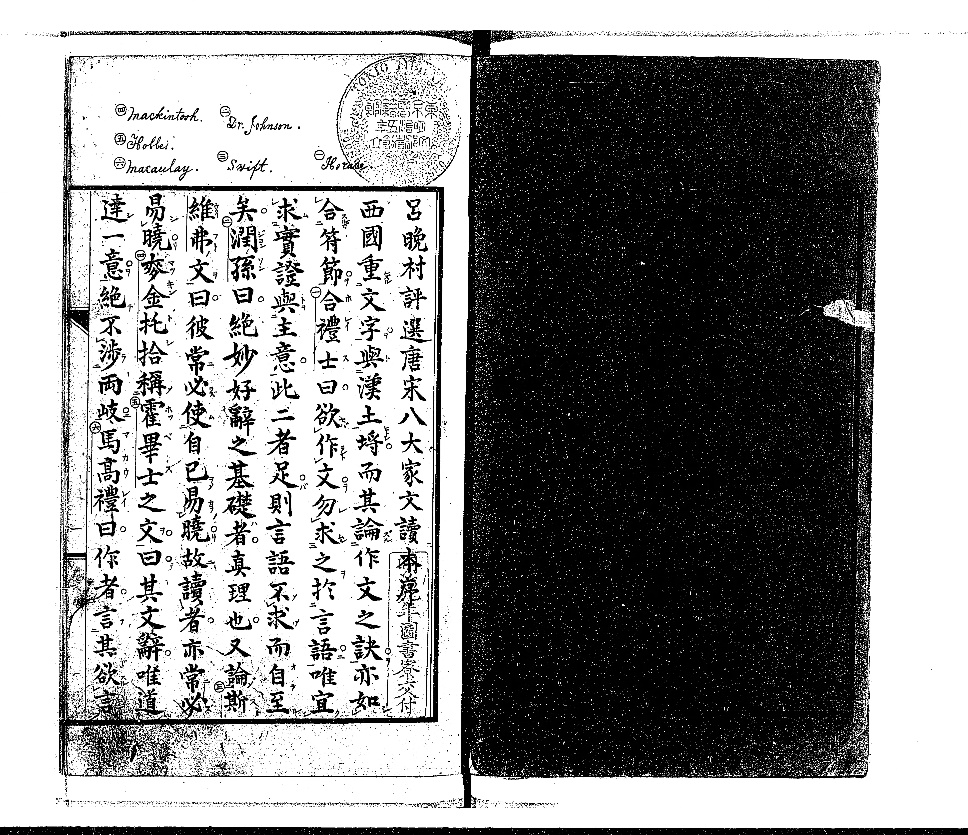 ㊀Horace.
㊁Dr. Johnson.
㊂Swift.
㊃Mackintosh.
㊄Hobbes.
㊅Macaulay.
呂晚村評選唐宋八大家文讀本序
西國重文字與漢土埒而其論作文之訣亦如
合符節㊀合禮士曰欲作文勿求之於言語唯宜
求實證與主意此二者足則言語不求而自至
矣㊁潤孫曰絕妙好辭之基礎者真理也又論㊂斯
維弗文曰彼常必使自已易曉故讀者亦常必
易曉㊃麥金托拾稱㊄霍畢士之文曰其文辭唯道
達一意絕不涉兩岐㊅馬高禮曰作者言其欲言